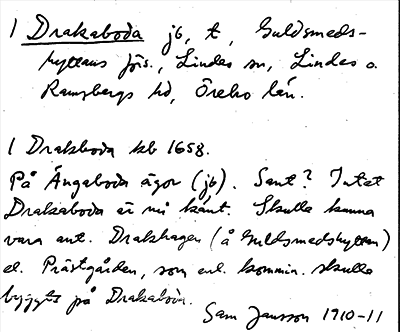 1 Drakaboda jb, t, Guldsmeds-
hyttans förs., Lindes sn, Lindes o.
Ramsbergs hd, Örebro län.
1 Drakboda kb 1658.
På Ängaboda ägor (jb). Sant? Intet
Drakaboda är nu känt. Skulle kunna
vara ant. Drakhagen (å Guldsmedshyttan)
el. Prästgården, som enl. kommin. skulle
byggts på Drakaboda.
Sam Jansson 1910-11